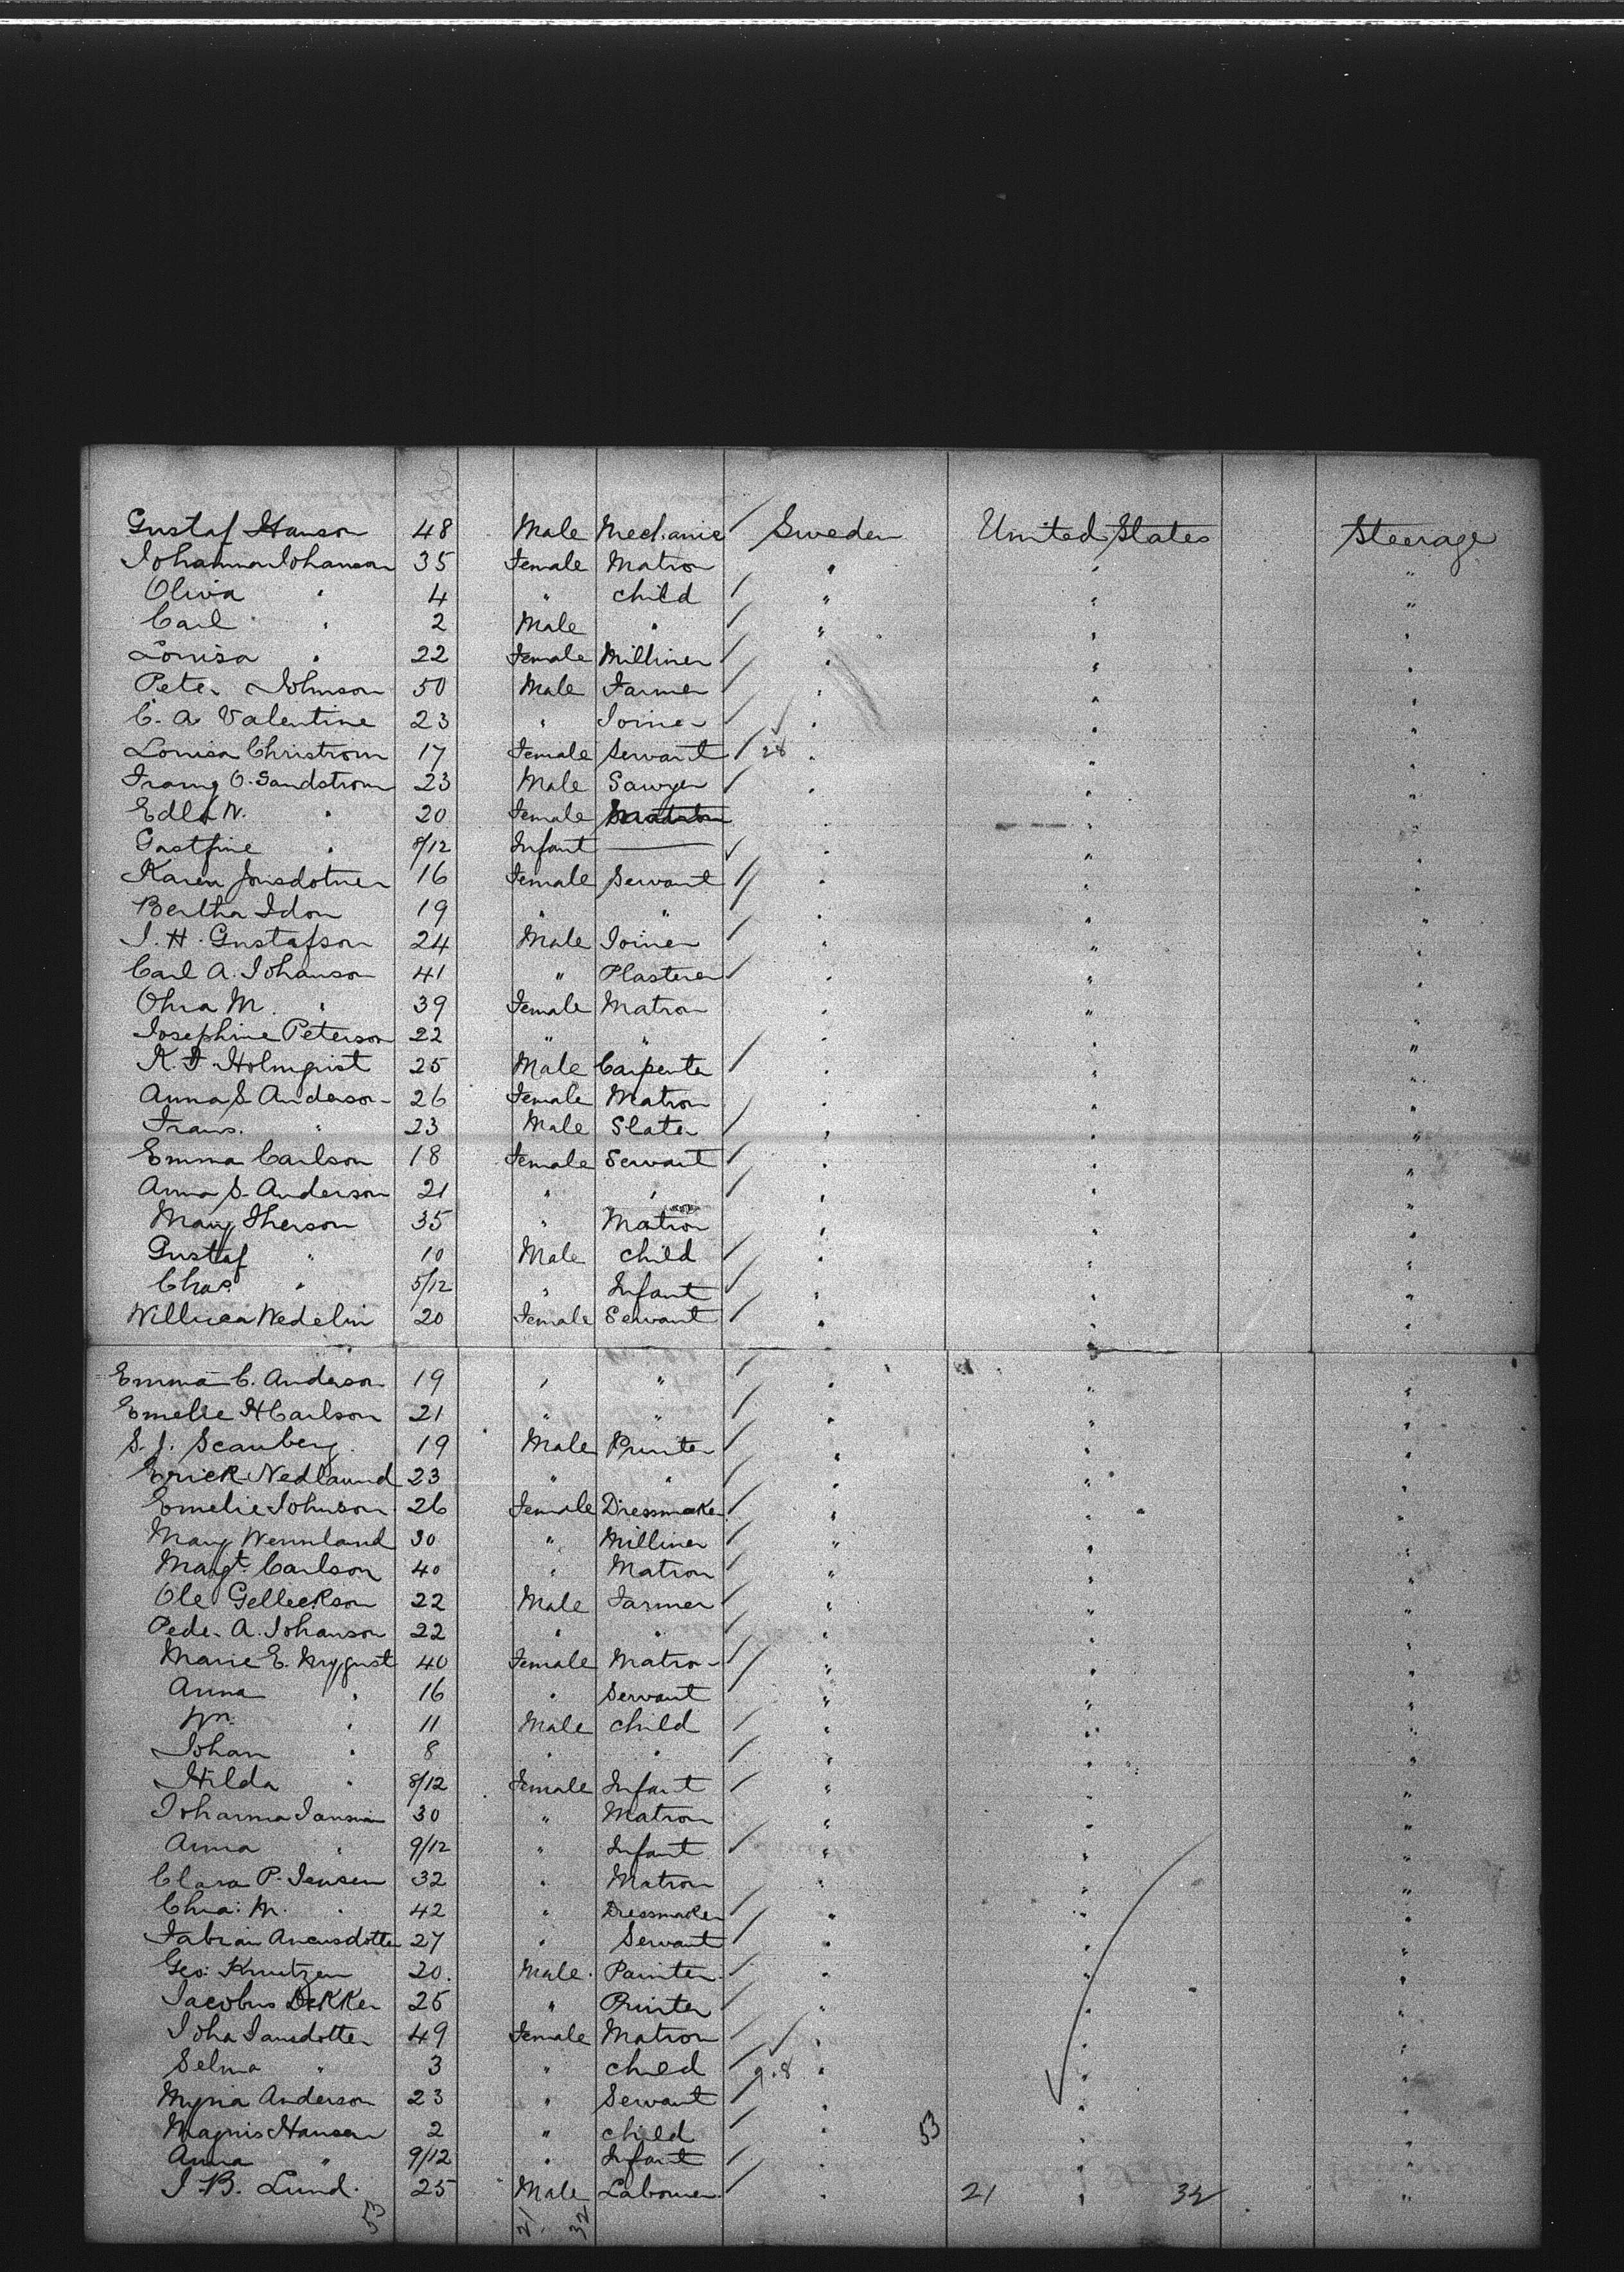 Gustaf Hanson 48 Male Mechanic Sweden United States Steerage
Johanna Johanson 35 Female Matron " " "
Oliva " 4 " child " " "
Carl " 2 Male " " " "
Louisa " 22 Female Milliner " " "
Peter Johnson 50 Male Farmer " " "
C. A. Valentine 23 " Joiner " " "
Louisa Christrom 17 Female Servant 28 " " "
O. Sandstrom 23 Male Sawyer " " "
N. " 20 Female " " "
" 8/12 Infant — " " "
Karen Jonsdotner 16 Female Servant " " "
Bertha Idon 19 " " " " "
J. H. Gustafson 24 Male Joiner " " "
Carl A. Johanson 41 " Plasterer " " "
M. " 39 Female Matron " " "
Josephine Peterson 22 " " " " "
K. F. Holmqvist 25 Male Carpenter " " "
Anna S. Anderson 26 Female Matron " " "
Frans. " 23 Male Slater " " "
Emma Carlson 18 Female Servant " " "
Anna S. Anderson 21 " " " " "
Mary Therson 35 " Matron " " "
Gustaf " 10 Male child " " "
Chas. " 5/12 " Infant " " "
Wedelin 20 Female Servant " " "
Emma C. Anderson 19 " " " " "
Emelie H Carlson 21 " " " " "
S. J. Scanberg. 19 Male Printer " " "
Erick Nedlaund 23 " " " " "
Emelie Johnson 26 Female Dressmaker " " "
Mary Wennland 30 " Milliner " " "
Margt. Carlson 40 " Matron " " "
Ole Gelleckson 22 Male Farmer " " "
Peder A. Johanson 22 " " " " "
Marie E. 40 Female Matron " " "
Anna " 16 " Servant " " "
Wm. " 11 Male child " " "
Johan " 8 " " " " "
Hilda " 8/12 Female Infant " " "
Johanna 30 " Matron " " "
Anna " 9/12 " Infant " " "
Clara P. Jensen 32 " Matron " " "
M. " 42 " Dressmaker " " "
Fabian 27 " Servant " " "
Geo: Knutzen 20. Male. Painter. " " "
Jacobus Dekker 25 " Printer " " "
Joha Jansdotter 49 Female Matron " " "
Selma " 3 " child 9.8 " " "
Myria Anderson 23 " Servant " " "
Magnis Hansen 2 " child " 53 " "
Anna " 9/12 " Infant " " "
J. B. Lund. 25 Male Labourer. " 21 " 32 "
53 21. 32